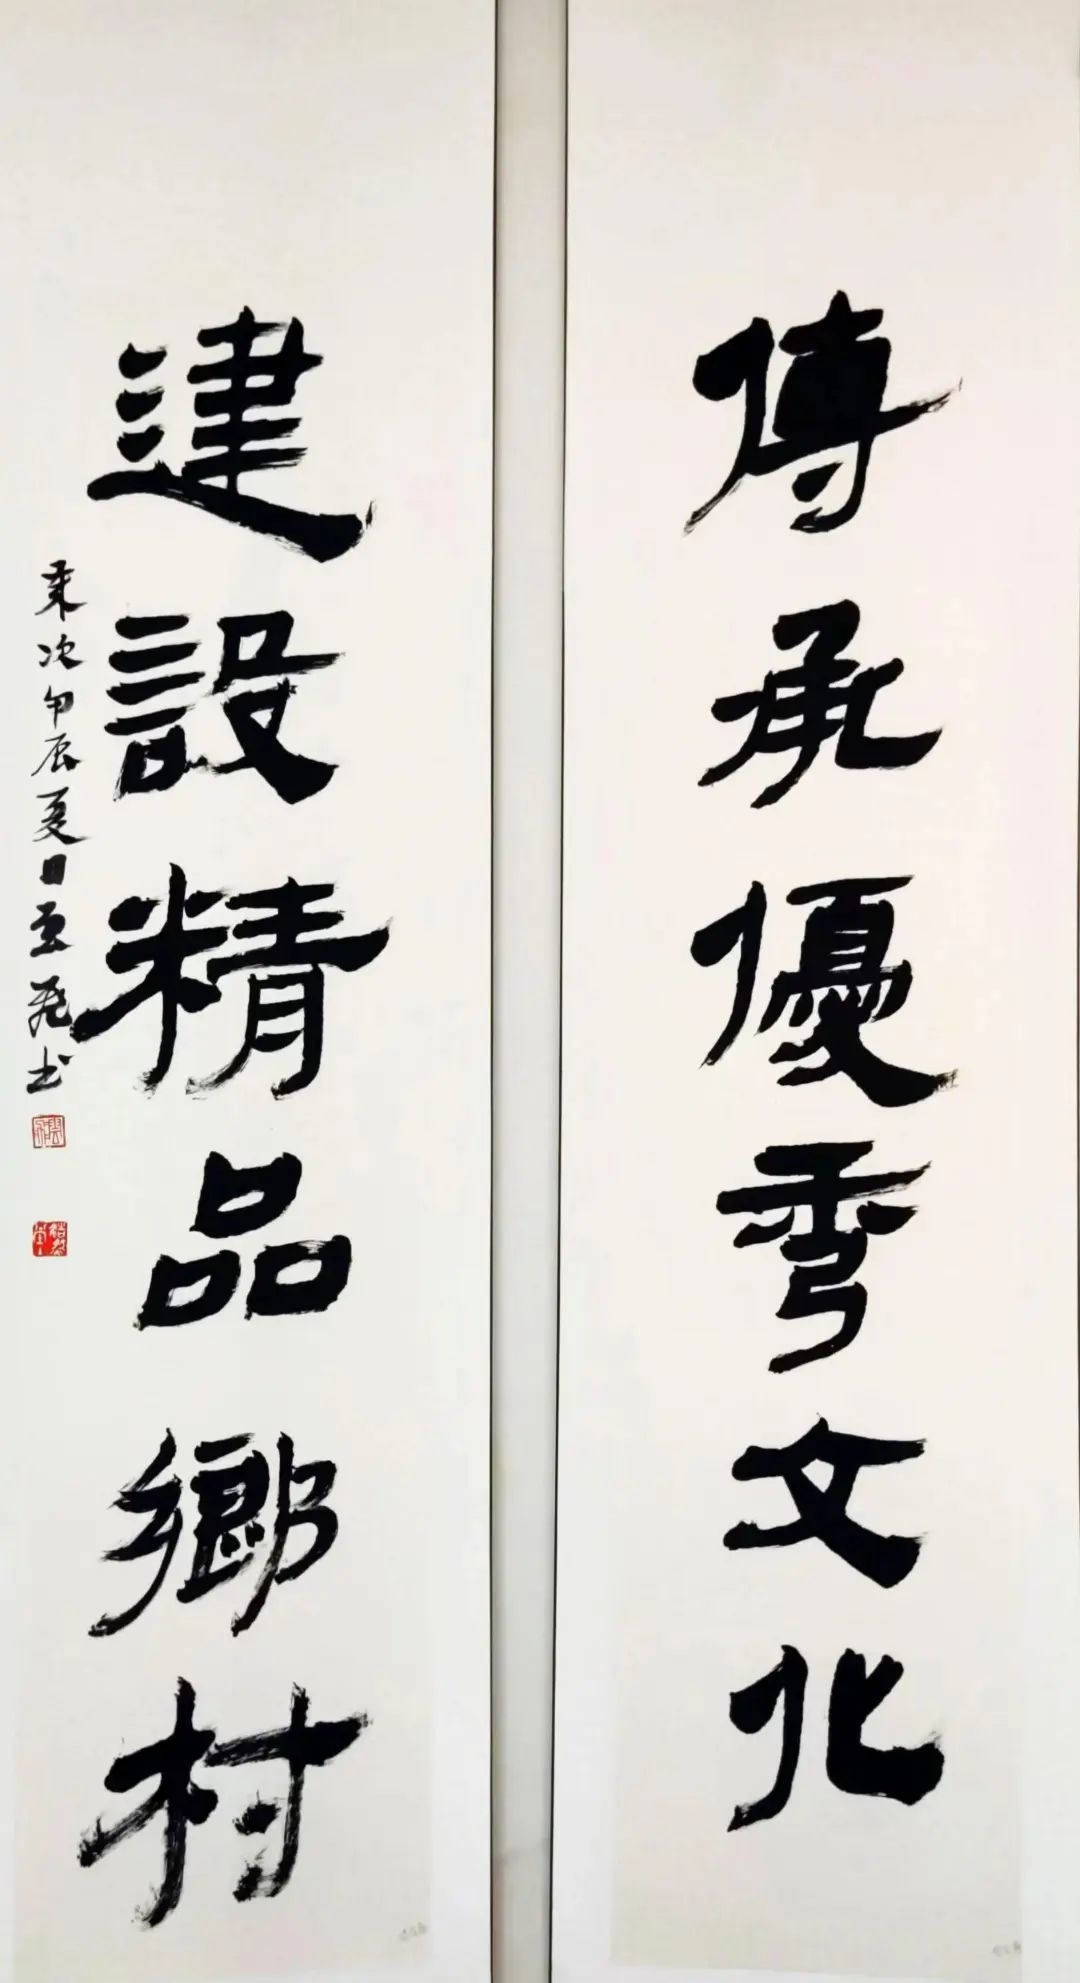 傳承優秀文化
建設精品鄉村
歲次甲辰夏日云飛书